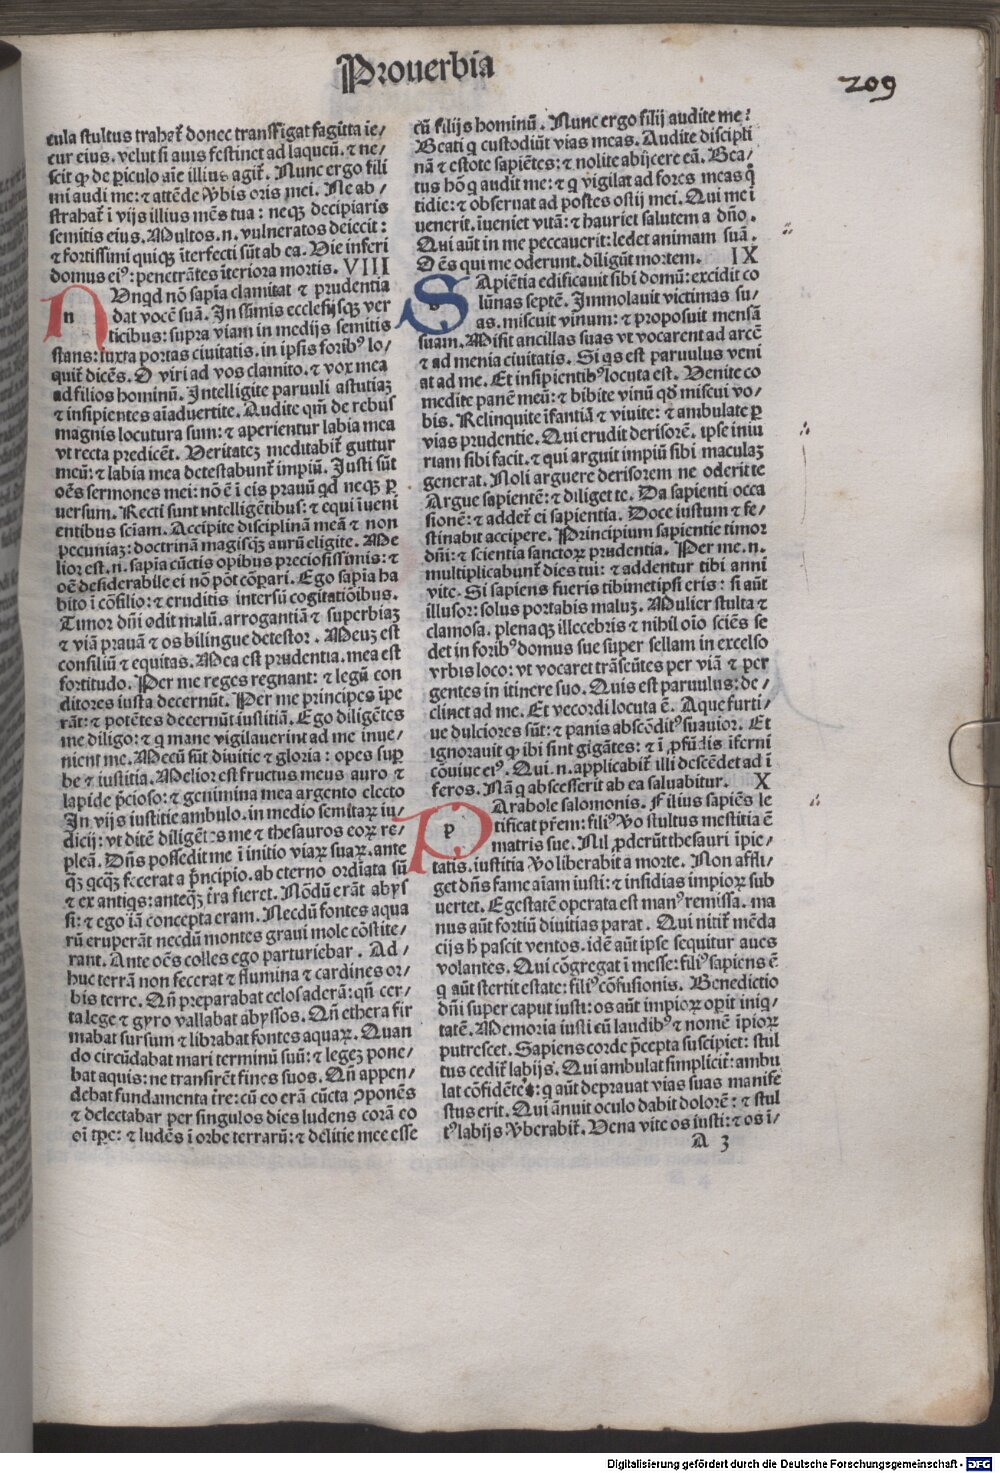 Prouerbia
209
cula stultus trahat̃ donec transfigat sagitta ie/
cur eius. velut si auis festinet ad laqueũ. ⁊ ne/
scit ꝙ de ꝑiculo aĩe illius agit̃. Nunc ergo fili
mi audi me: ⁊ attẽde ṽbis oris mei. Ne ab/
strahat̃ ĩ vijs illius mẽs tua: neqꝫ decipiaris
semitis eius. Multos .n. vulneratos deiecit:
⁊ fortissimi quiqꝫ ĩterfecti sũt ab ea. Uie inferi
domus eiꝰ: penetrãtes ĩteriora mortis. VIII
n
Unqd nõ sapĩa clamitat ⁊ prudentia
dat vocẽ suã. In sũmis ecclesijsqꝫ ver
ticibus: supra viam in medijs semitis
stans: iuxta portas ciuitatis. in ipsis foribꝰ lo/
quit̃ dicẽs. O viri ad vos clamito. ⁊ vox mea
ad filios hominũ. Intelligite paruuli astutiaꝫ
⁊ insipientes aĩaduertite. Audite qm̃ de rebus
magnis locutura sum: ⁊ aperientur labia mea
vt recta predicẽt. Ueritateꝫ meditabit̃ guttur
meũ: ⁊ labia mea detestabunt̃ impiũ. Justi sũt
oẽs sermones mei: nõ ẽ ĩ eis prauũ qd neqꝫ ꝑ
uersum. Recti sunt intelligẽtibus: ⁊ equi ĩueni
entibus sciam. Accipite disciplinã meã ⁊ non
pecuniaꝫ: doctrinã magisqꝫ aurũ eligite. Me
lior est .n. sapĩa cũctis opibus preciosissimis: ⁊
oẽ desiderabile ei nõ põt cõpari. Ego sapĩa ha
bito ĩ cõsilio: ⁊ eruditis intersũ cogitatiõibus.
Timor dñi odit malũ. arrogantiã ⁊ superbiaꝫ
⁊ viã prauã ⁊ os bilingue detestor. Meuꝫ est
consiliũ ⁊ equitas. Mea est prudentia. mea est
fortitudo. Per me reges regnant: ⁊ legũ con
ditores iusta decernũt. Per me principes ĩpe
rãt: ⁊ potẽtes decernũt iustitiã. Ego diligẽtes
me diligo: ⁊ q mane vigilauerint ad me inue/
nient me. Mecũ sũt diuitie ⁊ gloria: opes suꝑ
be ⁊ iustitia. Melior est fructus meus auro ⁊
lapide p̃cioso: ⁊ genimina mea argento electo
In vijs iustitie ambulo. in medio semitaꝝ iu/
dicij: vt ditẽ diligẽtes me ⁊ thesauros eoꝝ re/
pleã. Dñs possedit me ĩ initio viaꝝ suaꝝ. ante
qꝫ qcqꝫ fecerat a p̃ncipio. ab eterno ordĩata sũ
⁊ ex antiqs: anteqꝫ t̃ra fieret. Nõdũ erãt abys
si: ⁊ ego iã concepta eram. Necdũ fontes aqua
rũ eruperãt necdũ montes graui mole cõstite/
rant. Ante oẽs colles ego parturiebar. Ad/
huc terrã non fecerat ⁊ flumina ⁊ cardines or/
bis terre. Qñ preparabat celos aderã: qñ cer/
ta lege ⁊ gyro vallabat abyssos. Qñ ethera fir
mabat sursum ⁊ librabat fontes aquaꝝ. Quan
do circũdabat mari terminũ suũ: ⁊ legeꝫ pone/
bat aquis: ne transirẽt fines suos. Qñ appen/
debat fundamenta t̃re: cũ eo erã cũcta ꝯponẽs
⁊ delectabar per singulos dies ludens corã eo
oĩ tꝑe: ⁊ ludẽs ĩ orbe terrarũ: ⁊ delitie mee esse
cũ filijs hominũ. Nunc ergo filij audite me:
Beati q custodiũt vias meas. Audite discipli
nã ⁊ estote sapiẽtes: ⁊ nolite abijcere eã. Bea/
tus hõ q audit me: ⁊ q vigilat ad fores meas q̃
tidie: ⁊ obseruat ad postes ostij mei. Qui me ĩ
uenerit. ĩueniet vitã: ⁊ hauriet salutem a dño.
Qui aũt in me peccauerit: ledet animam suã.
Oẽs qui me oderunt. diligũt mortem. IX
s
Apiẽtia edificauit sibi domũ: excidit co
lũnas septẽ. Immolauit victimas su/
as. miscuit vinum: ⁊ proposuit mensã
suam. Misit ancillas suas vt vocarent ad arcẽ
⁊ ad menia ciuitatis. Si qs est paruulus veni
at ad me. Et insipientibꝰ locuta est. Uenite co
medite panẽ meũ: ⁊ bibite vinũ qd̃ miscui vo/
bis. Relinquite ĩfantiã ⁊ viuite: ⁊ ambulate ꝑ
vias prudentie. Qui erudit derisorẽ. ipse iniu
riam sibi facit. ⁊ qui arguit impiũ sibi maculaꝫ
generat. Noli arguere derisorem ne oderit te
Argue sapientẽ: ⁊ diliget te. Da sapienti occa
sionẽ: ⁊ addet̃ ei sapientia. Doce iustum ⁊ fe/
stinabit accipere. Principium sapientie timor
dñi: ⁊ scientia sanctoꝝ prudentia. Per me .n.
multiplicabunt̃ dies tui: ⁊ addentur tibi anni
vite. Si sapiens fueris tibimetipsi eris: si aũt
illusor: solus portabis maluꝫ. Mulier stulta ⁊
clamosa. plenaqꝫ illecebris ⁊ nihil oĩo sciẽs se
det in foribꝰ domus sue super sellam in excelso
vrbis loco: vt vocaret trãseũtes per viã ⁊ per
gentes in itinere suo. Quis est paruulus: de/
clinet ad me. Et vecordi locuta ẽ. Aque furti/
ue dulciores sũt: ⁊ panis abscõditꝰ suauior. Et
ignorauit ꝙ ibi sint gigãtes: ⁊ ĩ ꝓfũdis ĩferni
cõuiue eiꝰ. Qui .n. applicabit̃ illi descẽdet ad ĩ
feros. Nã q abscesserit ab ea saluabitur. X
p
Arabole salomonis. Filius sapiẽs le
tificat pr̃em: filiꝰ ṽo stultus mestitia ẽ
matris sue. Nil ꝓderũt thesauri ĩpie/
tatis. iustitia ṽo liberabit a morte. Non affli/
get dñs fame aĩam iusti: ⁊ insidias impioꝝ sub
uertet. Egestatẽ operata est manꝰ remissa. ma
nus aũt fortiũ diuitias parat. Qui nitit̃ mẽda
cijs h̃ pascit ventos. idẽ aũt ipse sequitur aues
volantes. Qui cõgregat ĩ messe: filiꝰ sapiens ẽ
q aũt stertit estate: filiꝰ cõfusionis. Benedictio
dñi super caput iusti: os aũt impioꝝ oꝑit iniq/
tatẽ. Memoria iusti cũ laudibꝰ ⁊ nomẽ ĩpioꝝ
putrescet. Sapiens corde p̃cepta suscipiet: stul
tus cedit̃ labijs. Qui ambulat simplicit̃: ambu
lat cõfidẽter: q aũt deprauat vias suas manife
stus erit. Qui ãnuit oculo dabit dolorẽ: ⁊ stul
tꝰ labijs ṽberabit̃. Uena vite os iusti: ⁊ os ĩ/
A 3
Digitalisierung gefördert durch die Deutsche Forschungsgemeinschaft - DFG